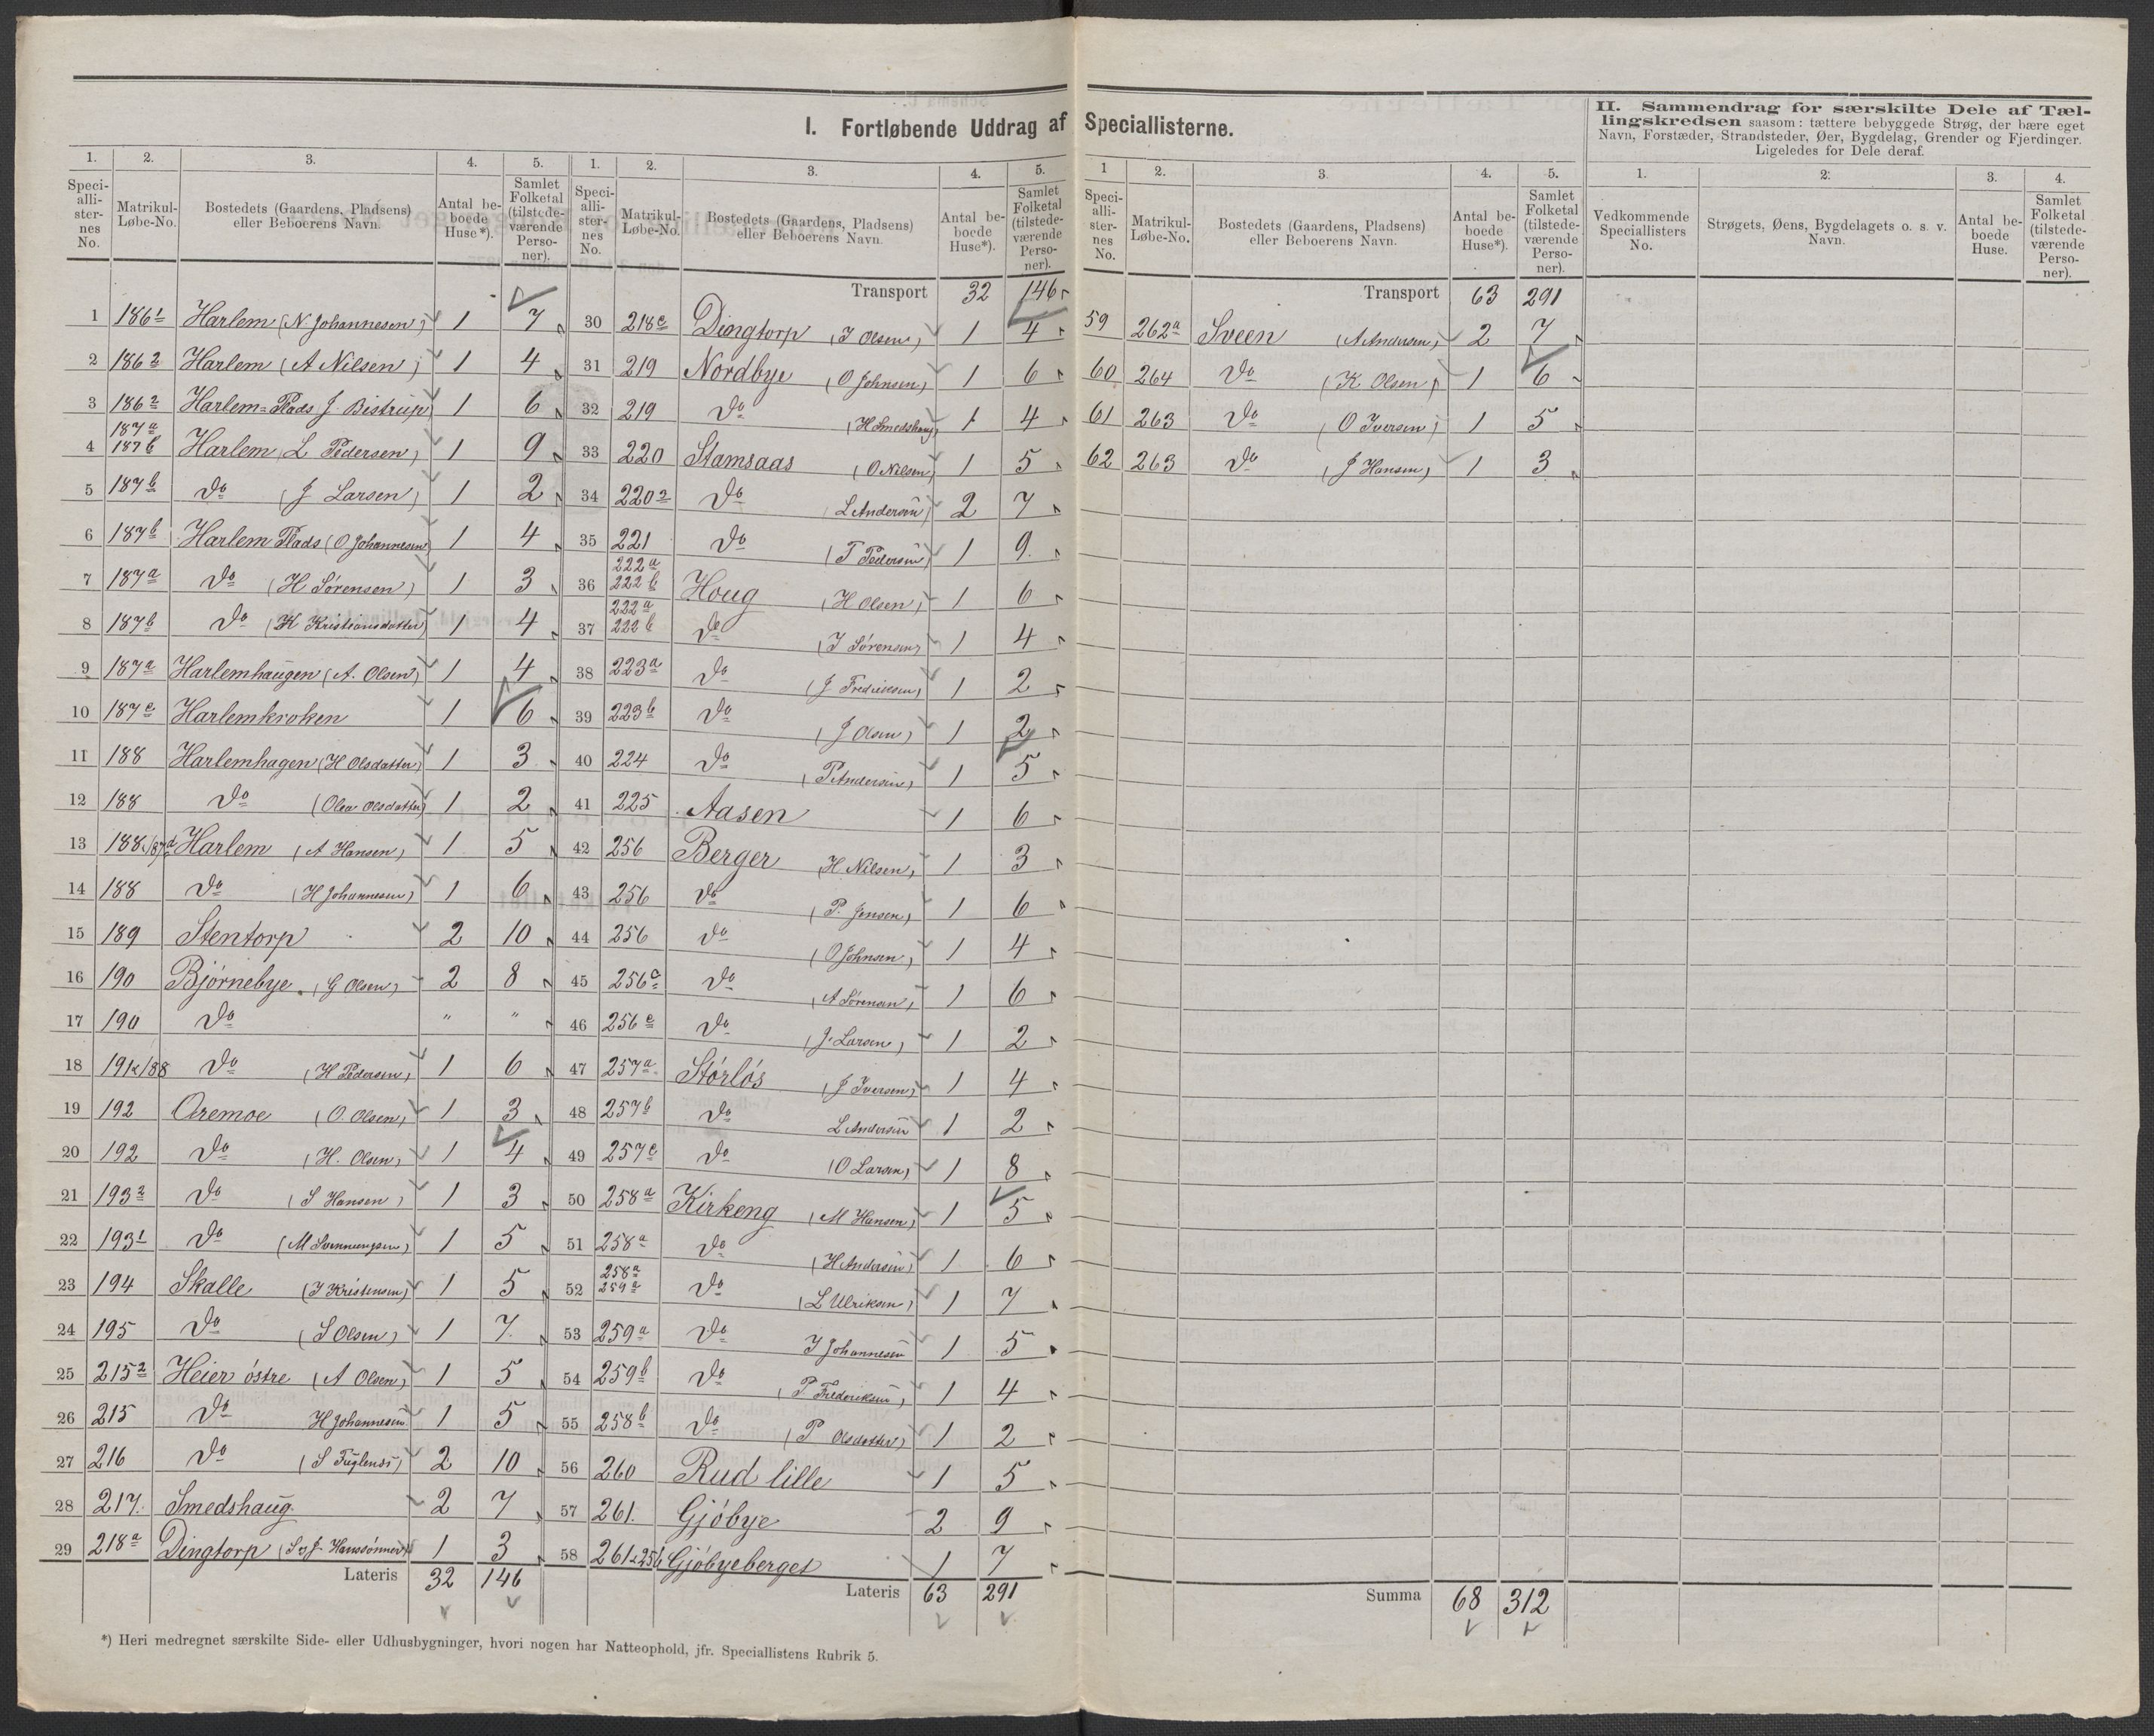 I. Fortløbende Uddrag af Speciallisterne.
II. Sammendrag for særskilte Dele af Tæl-
lingskredsen saasom: tættere bebyggede Strøg, der bære eget
Navn, Forstæder, Strandsteder, Øer, Bygdelag, Grender og Fjerdinger.
Ligeledes for Dele deraf.
1. 2. 3. 4. 5.
Speci-alli-ster-nes No. Matrikul-Løbe-No. Bostedets (Gaardens, Pladsens) eller Beboerens Navn. Antal be-boede Huse*). Samlet Folketal (tilstede-værende Perso-ner).
1 186 1 Harlem (N Johannesen) 1 7
2 186 2 Harlem (A Nilsen) 1 4
3 186 2 Harlem=Plads J. Bistrup) 1 6
4 187 a 187 b Harlem L Pedersen) 1 9
5 187 b Do (J Larsen) 1 2
6 187 b Harlem Plads (O Johannesen 1 4
7 187 a Do (H Sørensen) 1 3
8 187 b Do (K Kristiansdatter) 1 4
9 187 a Harlemhaugen (A. Olsen) 1 4
10 187 c Harlemkroken 1 6
11 188 Harlemhagen (H Olsdatter) 1 3
12 188 Do (Olea Olsdatter) 1 2
13 188./187 d Harlem (A Hansen) 1 5
14 188 Do (H Johannesen) 1 6
15 189 Stentorp 2 10
16 190 Bjørnebye (G Olsen) 2 8
17 190 Do " "
18 191x/88 Do (H Pedersen) 1 6
19 192 Oremoe (O. Olsen) 1 3
20 192 Do (H. Olsen) 1 4
21 193 2 Do (S Hansen) 1 3
22 193 1 Do (M Svennungsen) 1 5
23 194 Skalle (J Kristensen) 1 5
24 195 Do (S Olsen) 1 7
25 215 2 Heier østre (A Olsen) 1 5
26 215 Do H Johannesen 1 5
27 216 Do (S Fuglends) 2 10
28 217. Smedshaug 2 7
29 218 a Dingtorp (S og J. Hanssønner) 1 3
Lateris 32 146
1. 2. 3. 4. 5.
Speci-alli-ster-nes No. Matrikul-Løbe-No. Bostedets (Gaardens, Pladsens) eller Beboerens Navn. Antal be-boede Huse*). Samlet Folketal (tilstede-værende Perso-ner).
Transport 32 146
30 218 c Dingtorp (J Olsen) 1 4
31 219 Nordbye (O Johnsen) 1 6
32 219 Do (H Smedshaug) 1 4
33 220 Stamsaas (O Nilsen) 1 5
34 220 2 Do L Andersen) 2 7
35 221 Do (T Pedersen) 1 9
36 222 a 222 b Houg (H Olsen) 1 6
37 222 a 222 b Do (J Sørensen) 1 4
38 223 a Do (J Fredriksen) 1 2
39 223 b Do (J Olsen) 1 2
40 224 Do (P Andersen) 1 5
41 225 Aasen 1 6
42 256 Berger H Nilsen) 1 3
43 256 Do (P. Jensen) 1 6
44 256 Do (O Johnsen) 1 4
45 256 a Do (A Sørensen) 1 6
46 256 c Do (J. Larsen) 1 2
47 257 a Størløs (J Iversen) 1 4
48 257 b Do L Andersen 1 2
49 257 c Do (O Larsen) 1 8
50 258 a Kirkeng (M Hansen) 1 5
51 258 a Do (H Andersen) 1 6
52 258 a 259 a Do (L Ulriksen) 1 7
53 259 a Do J Johannesen 1 5
54 259 b Do (P Frederiksen) 1 4
55 258 b Do (P Olsdatter) 1 2
56 260 Rud lille 1 5
57 261. Gjøbye 2 9
58 261 x 256 Gjøbyeberget 1 7
Lateris 63 291
1 2. 3. 4. 5.
Speci-alli-ster-nes No. Matrikul-Løbe-No. Bostedets (Gaardens, Pladsens) eller Beboerens Navn. Antal be-boede Huse*). Samlet Folketal (tilstede-værende Perso-ner).
Transport 63 291
59 262 a Sveen (A Andersen) 2 7
60 264 Do (K Olsen) 1 6
61 263 Do (O Iversen) 1 5
62 263 Do (J Hansen) 1 3
Summa 68 312
1. 2. 3. 4.
Vedkommende Speciallisters No. Strøgets, Øens, Bygdelagets o. s. v. Navn. Antal be-boede Huse. Samlet Folketal (tilstede-værende Perso-ner).
*) Heri medregnet særskilte Side- eller Udhusbygninger, hvori nogen har Natteophold, jfr. Speciallistens Rubrik 5.